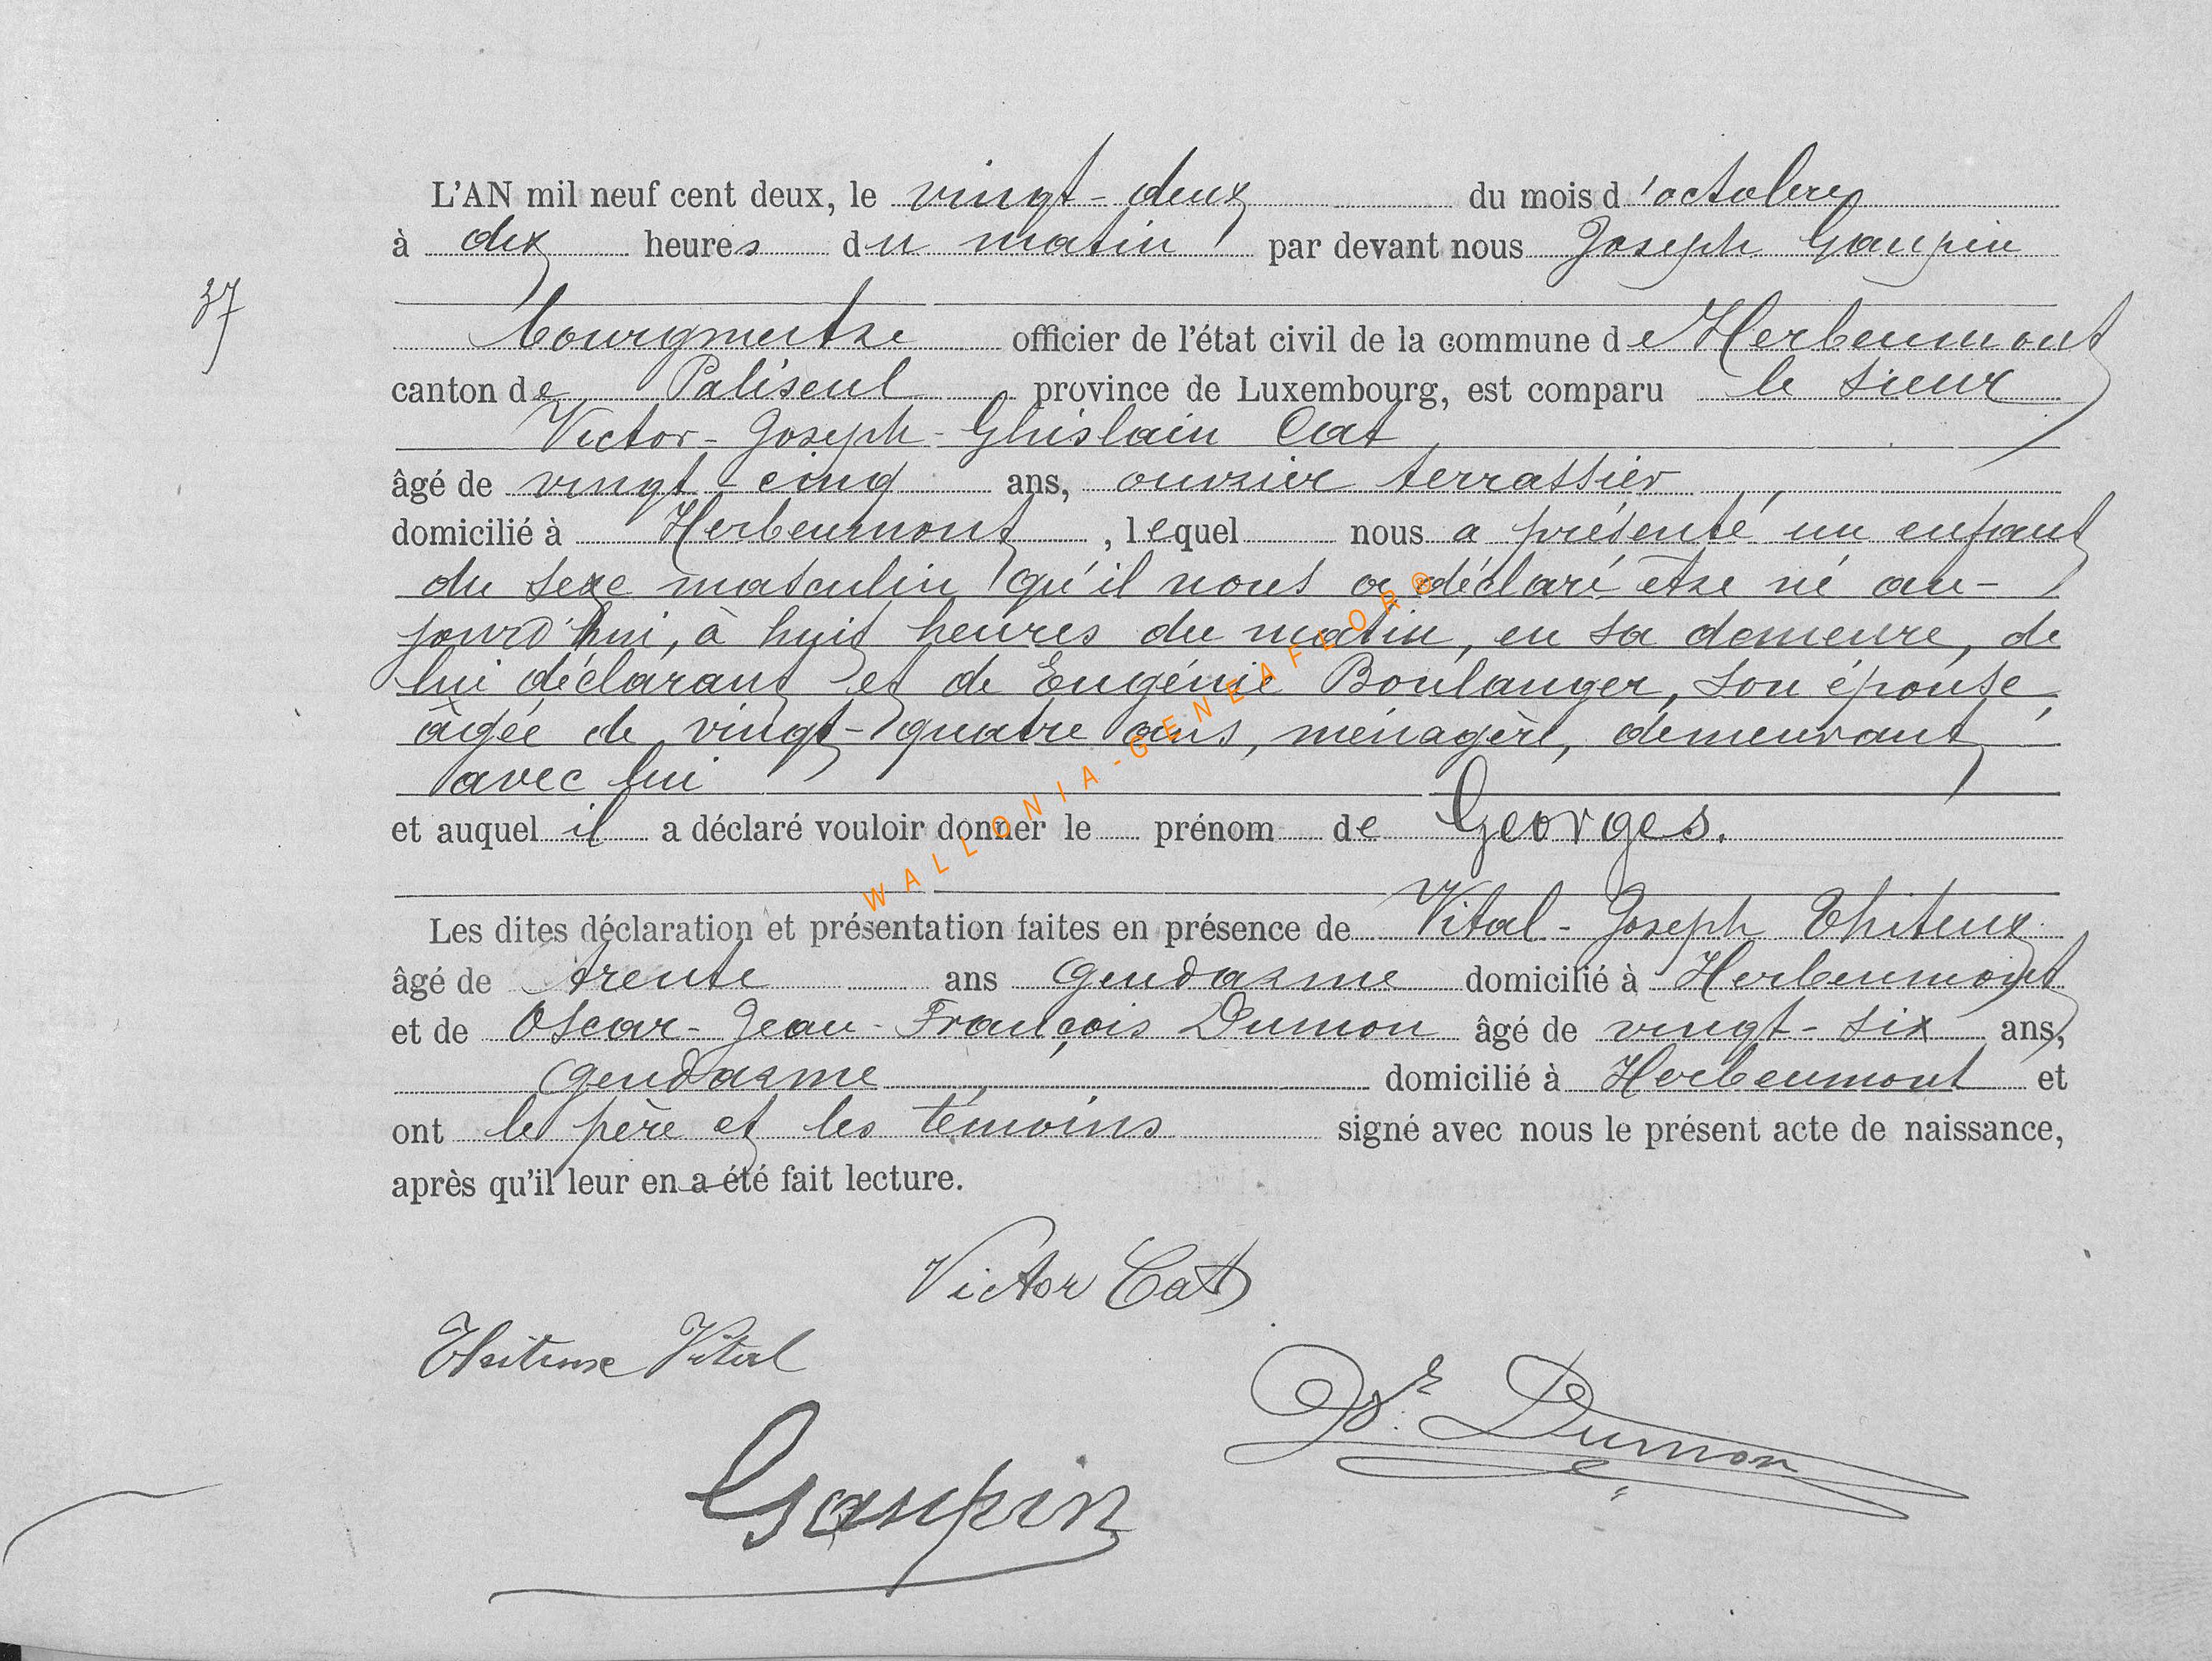 L'AN mil neuf cent deux, le vingt-deux du mois d'octobre
à dix heures du matin par devant nous Joseph Gaupin
37
bourgmestre officier de l'état civil de la commune de Herbeumont
canton de Paliseul province de Luxembourg, est comparu le sieur
Victor-Joseph-Ghislain Cat,
âgé de vingt-cinq ans, ouvrier terrassier,
domicilié à Herbeumont, lequel nous a présenté un enfant
du sexe masculin qu'il nous a déclaré être né au-
jourd'hui, à huit heures du matin, en sa demeure, de
lui déclarant et de Eugénie Boulanger, son épouse,
âgée de vingt-quatre ans, ménagère, demeurant
avec lui
et auquel il a déclaré vouloir donner le prénom de Georges.
Les dites déclaration et présentation faites en présence de Vital-Joseph Thiteux
âgé de trente ans gendarme domicilié à Herbeumont
et de Oscar-Jean-François Dumon âgé de vingt-six ans,
gendarme domicilié à Herbeumont et
ont le père et les témoins signé avec nous le présent acte de naissance,
après qu'il leur en a été fait lecture.
Victor Cat
Thiteux Vital
Dumon
Gaupin
WALLONIA-GENEAFLOR®